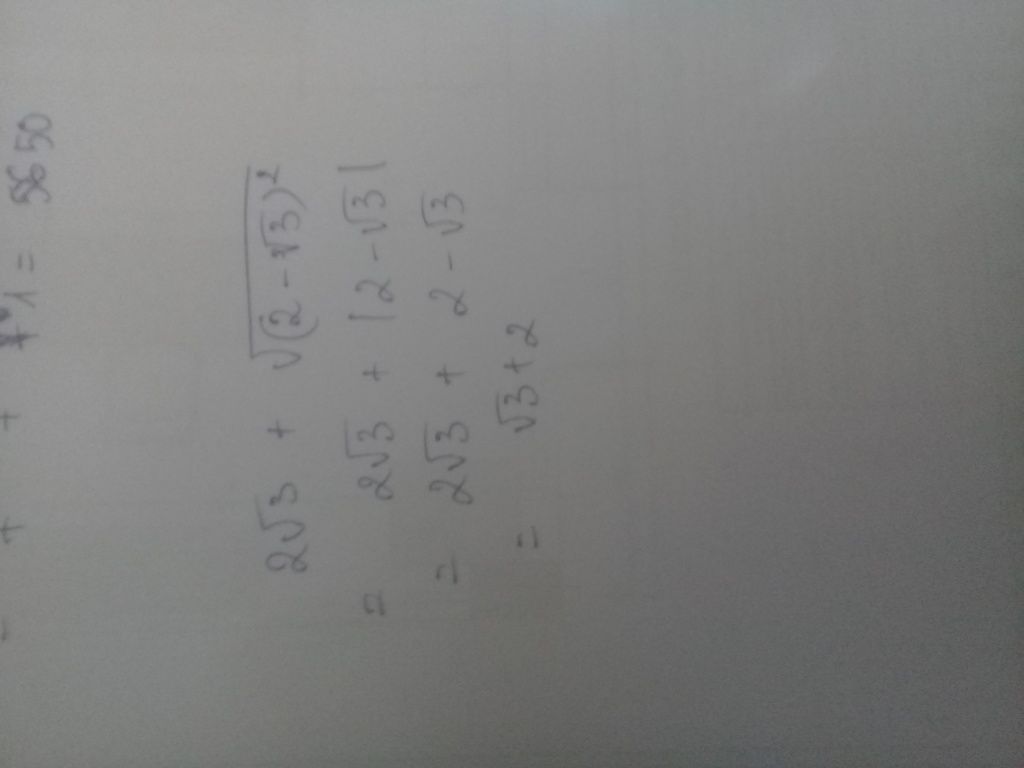 - + + 1 = 5650
2√3 + √(2-√3)²
= 2√3 + |2-√3|
= 2√3 + 2-√3
= √3+2